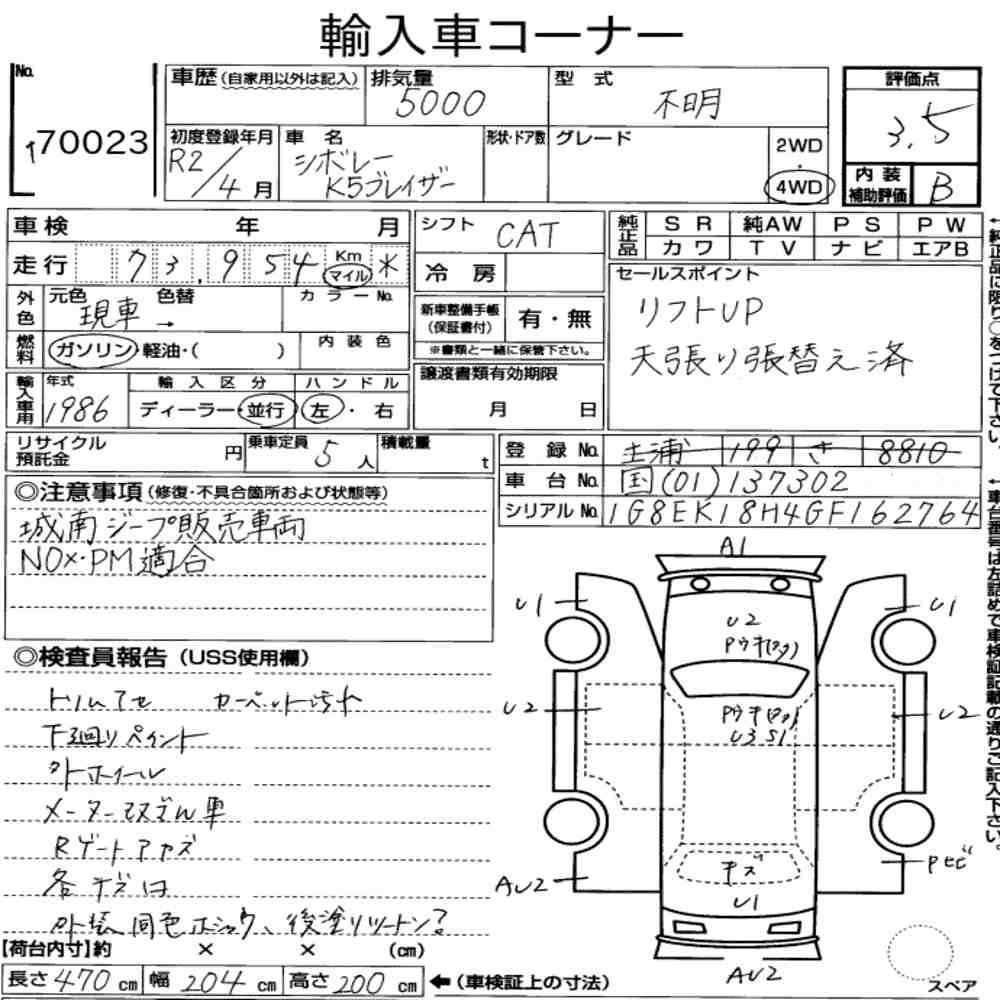 輸入車コーナー
No. 70023
車歴(自家用以外は記入)
排気量 5000
型式 不明
評価点 3.5
初度登録年月 R2/4月
車名 シボレー K5ブレイザー
形状・ドア数
グレード
2WD・4WD
内装補助評価 B
車検 年 月
シフト CAT
純正品 SR 純AW PS PW
カワ TV ナビ エアB
走行 73,954 Km マイル *
冷房
セールスポイント
リフトUP
天張り張替え済
外色 元色 現車 色替 → カラーNo.
新車整備手帳(保証書付) 有・無
※書類と一緒に保管下さい。
燃料 ガソリン・軽油・( ) 内装色
譲渡書類有効期限 月 日
輸入車用 年式 1986 輸入区分 ディーラー・並行 ハンドル 左・右
リサイクル預託金 円 乗車定員 5人 積載量 t
登録No. 土浦 199 さ 8810
車台No. 国(01)137302
シリアルNo. 1G8EK18H4GF162764
←純正品に限り○をつけて下さい。
←車台番号は左詰めで車検証記載の通りご記入下さい。
◎注意事項(修復・不具合箇所および状態等)
城南ジープ販売車両
NOx・PM適合
◎検査員報告(USS使用欄)
トリムアセ カーペット汚れ
下廻りペイント
外ホイール
Rゲートアカズ
各キズ凹
A1
U1 U1
U2
U2 U2
U3 S1
キズ
U1
AU2 Pセビ
AU2
【荷台内寸】約 × × (cm)
長さ470cm 幅204cm 高さ200cm ←(車検証上の寸法)
スペア